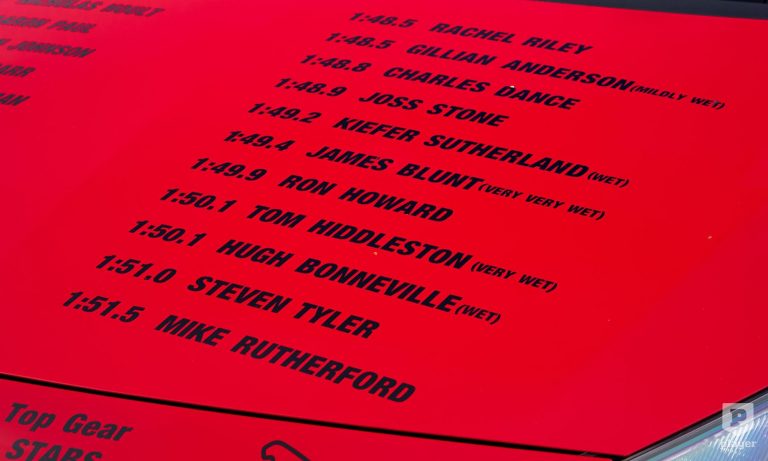 NICHOLAS HOULT
AARON PAUL
JOHNSON
1:48.5 RACHEL RILEY
1:48.5 GILLIAN ANDERSON (MILDLY WET)
1:48.8 CHARLES DANCE
1:48.9 JOSS STONE
1:49.2 KIEFER SUTHERLAND (WET)
1:49.4 JAMES BLUNT (VERY VERY WET)
1:49.9 RON HOWARD
1:50.1 TOM HIDDLESTON (VERY WET)
1:50.1 HUGH BONNEVILLE (WET)
1:51.0 STEVEN TYLER
1:51.5 MIKE RUTHERFORD
Top Gear
STARS
player